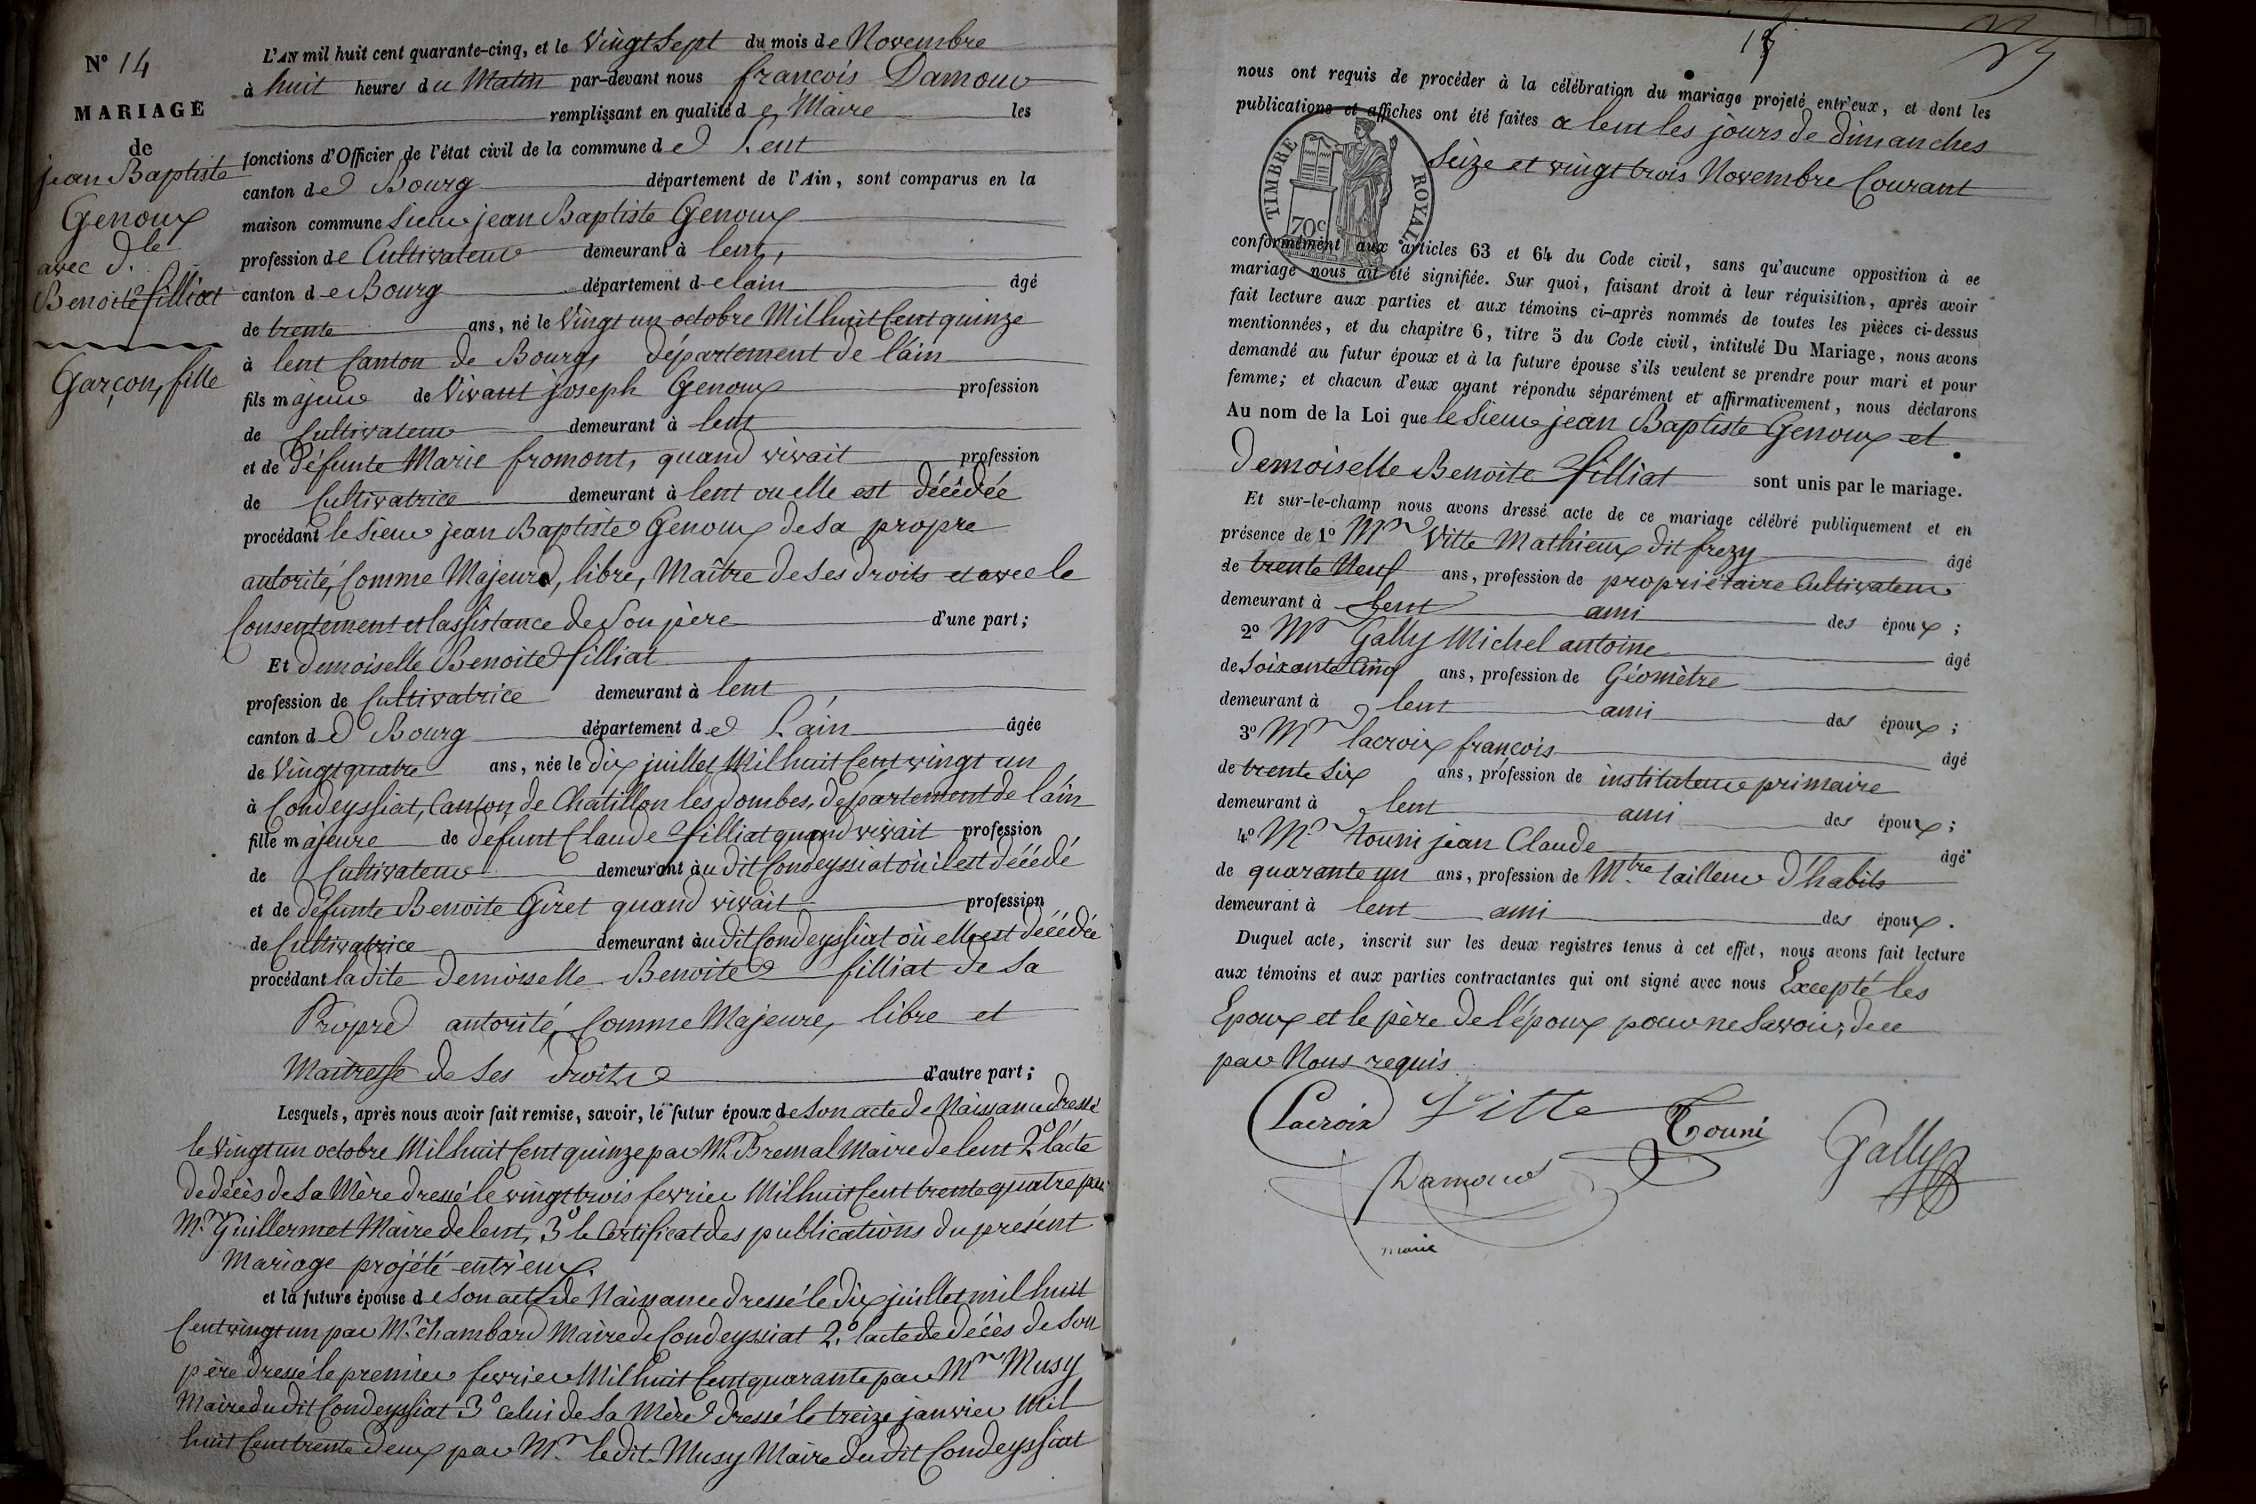 N° 14
MARIAGE
de
jean Baptiste
Genoux
avec d.le
Benoite filliat
Garçon, fille
L'AN mil huit cent quarante-cinq, et le Vingt Sept du mois de Novembre
à huit heures du Matin par-devant nous françois Damour
remplissant en qualité de Maire les
fonctions d'Officier de l'état civil de la commune de Lent
canton de Bourg département de l'Ain, sont comparus en la
maison commune Sieur jean Baptiste Genoux
profession de Cultivateur demeurant à lent,
canton de Bourg département de lain âgé
de trente ans, né le Vingt un octobre Mil huit Cent quinze
à lent Canton de Bourg, département de l'ain
fils majeur de Vivant joseph Genoux profession
de Cultivateur demeurant à lent
et de défunte Marie fromont, quand vivait profession
de Cultivatrice demeurant à lent ou elle est décédée
procédant le Sieur jean Baptiste Genoux de sa propre
autorité, Comme Majeur, libre, Maître de Ses droits et avec le
Consentement et lassistance de Son père d'une part;
Et demoiselle Benoite filliat
profession de Cultivatrice demeurant à lent
canton de Bourg département de L'ain âgée
de Vingt quatre ans, née le dix juillet Mil huit Cent vingt un
à Condeyssiat, Canton de Châtillon les dombes, département de l'ain
fille majeure de defunt Claude filliat quand vivait profession
de Cultivateur demeurant au dit Condeyssiat où il est décédé
et de défunte Benoite Giret quand vivait profession
de Cultivatrice demeurant au dit Condeyssiat où elle est décédée
procédant ladite demoiselle Benoite filliat de Sa
Propre autorité, Comme Majeure, libre et
Maitresse de Ses droits d'autre part;
Lesquels, après nous avoir fait remise, savoir, le futur époux de Son acte de Naissance dressé
le Vingt un octobre Mil huit Cent quinze par Mr. Bremal Maire de lent 2° l'acte
de décès de Sa Mère dressé le vingt trois fevrier Mil huit Cent trente quatre par
Mr. Guillermet Maire de lent, 3° le Certificat des publications du présent
Mariage projété entr'eux.
et la future épouse de Son acte de Naissance dressé le dix juillet mil huit
Cent vingt un par Mr. Chambard Maire de Condeyssiat 2.° lacte de décès de Son
père dressé le premier fevrier Mil huit Cent quarante par Mr Musy
Maire du dit Condeyssiat 3° celui de Sa Mère dressé le treize janvier Mil
huit Cent trente deux par Mr. le dit Musy Maire du dit Condeyssiat
nous ont requis de procéder à la célébration du mariage projeté entr'eux, et dont les
publications et affiches ont été faites a lent les jours de dimanches
Seize et vingt trois Novembre Courant
TIMBRE ROYAL
70c
conformément aux articles 63 et 64 du Code civil, sans qu'aucune opposition à ce
mariage nous ait été signifiée. Sur quoi, faisant droit à leur réquisition, après avoir
fait lecture aux parties et aux témoins ci-après nommés de toutes les pièces ci-dessus
mentionnées, et du chapitre 6, titre 5 du Code civil, intitulé Du Mariage, nous avons
demandé au futur époux et à la future épouse s'ils veulent se prendre pour mari et pour
femme; et chacun d'eux ayant répondu séparément et affirmativement, nous déclarons
Au nom de la Loi que le Sieur jean Baptiste Genoux et
demoiselle Benoite filliat sont unis par le mariage.
Et sur-le-champ nous avons dressé acte de ce mariage célébré publiquement et en
présence de 1° Mr Vitte Mathieux dit frezy âgé
de trente Neuf ans, profession de propriétaire Cultivateur
demeurant à lent ami des époux;
2° Mr Gally Michel antoine âgé
de Soixante Cinq ans, profession de Géomètre
demeurant à lent ami des époux;
3° Mr lacroix françois âgé
de trente Six ans, profession de instituteur primaire
demeurant à lent ami des époux;
4° Mr. touni jean Claude âgé
de quarante un ans, profession de Mtre tailleur d'habits
demeurant à lent ami des époux.
Duquel acte, inscrit sur les deux registres tenus à cet effet, nous avons fait lecture
aux témoins et aux parties contractantes qui ont signé avec nous Excepté les
Epoux et le père de l'époux pour ne Savoir, de ce
par Nous requis
Lacroix Vitte Touni Gally
Damour
maire